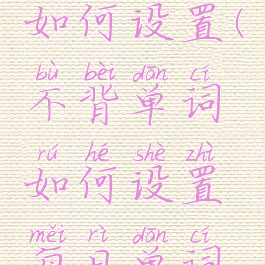 如何设置(
bù bèi dān cí
不背单词
rú hé shè zhì
如何设置
měi rì dān cí
每日单词